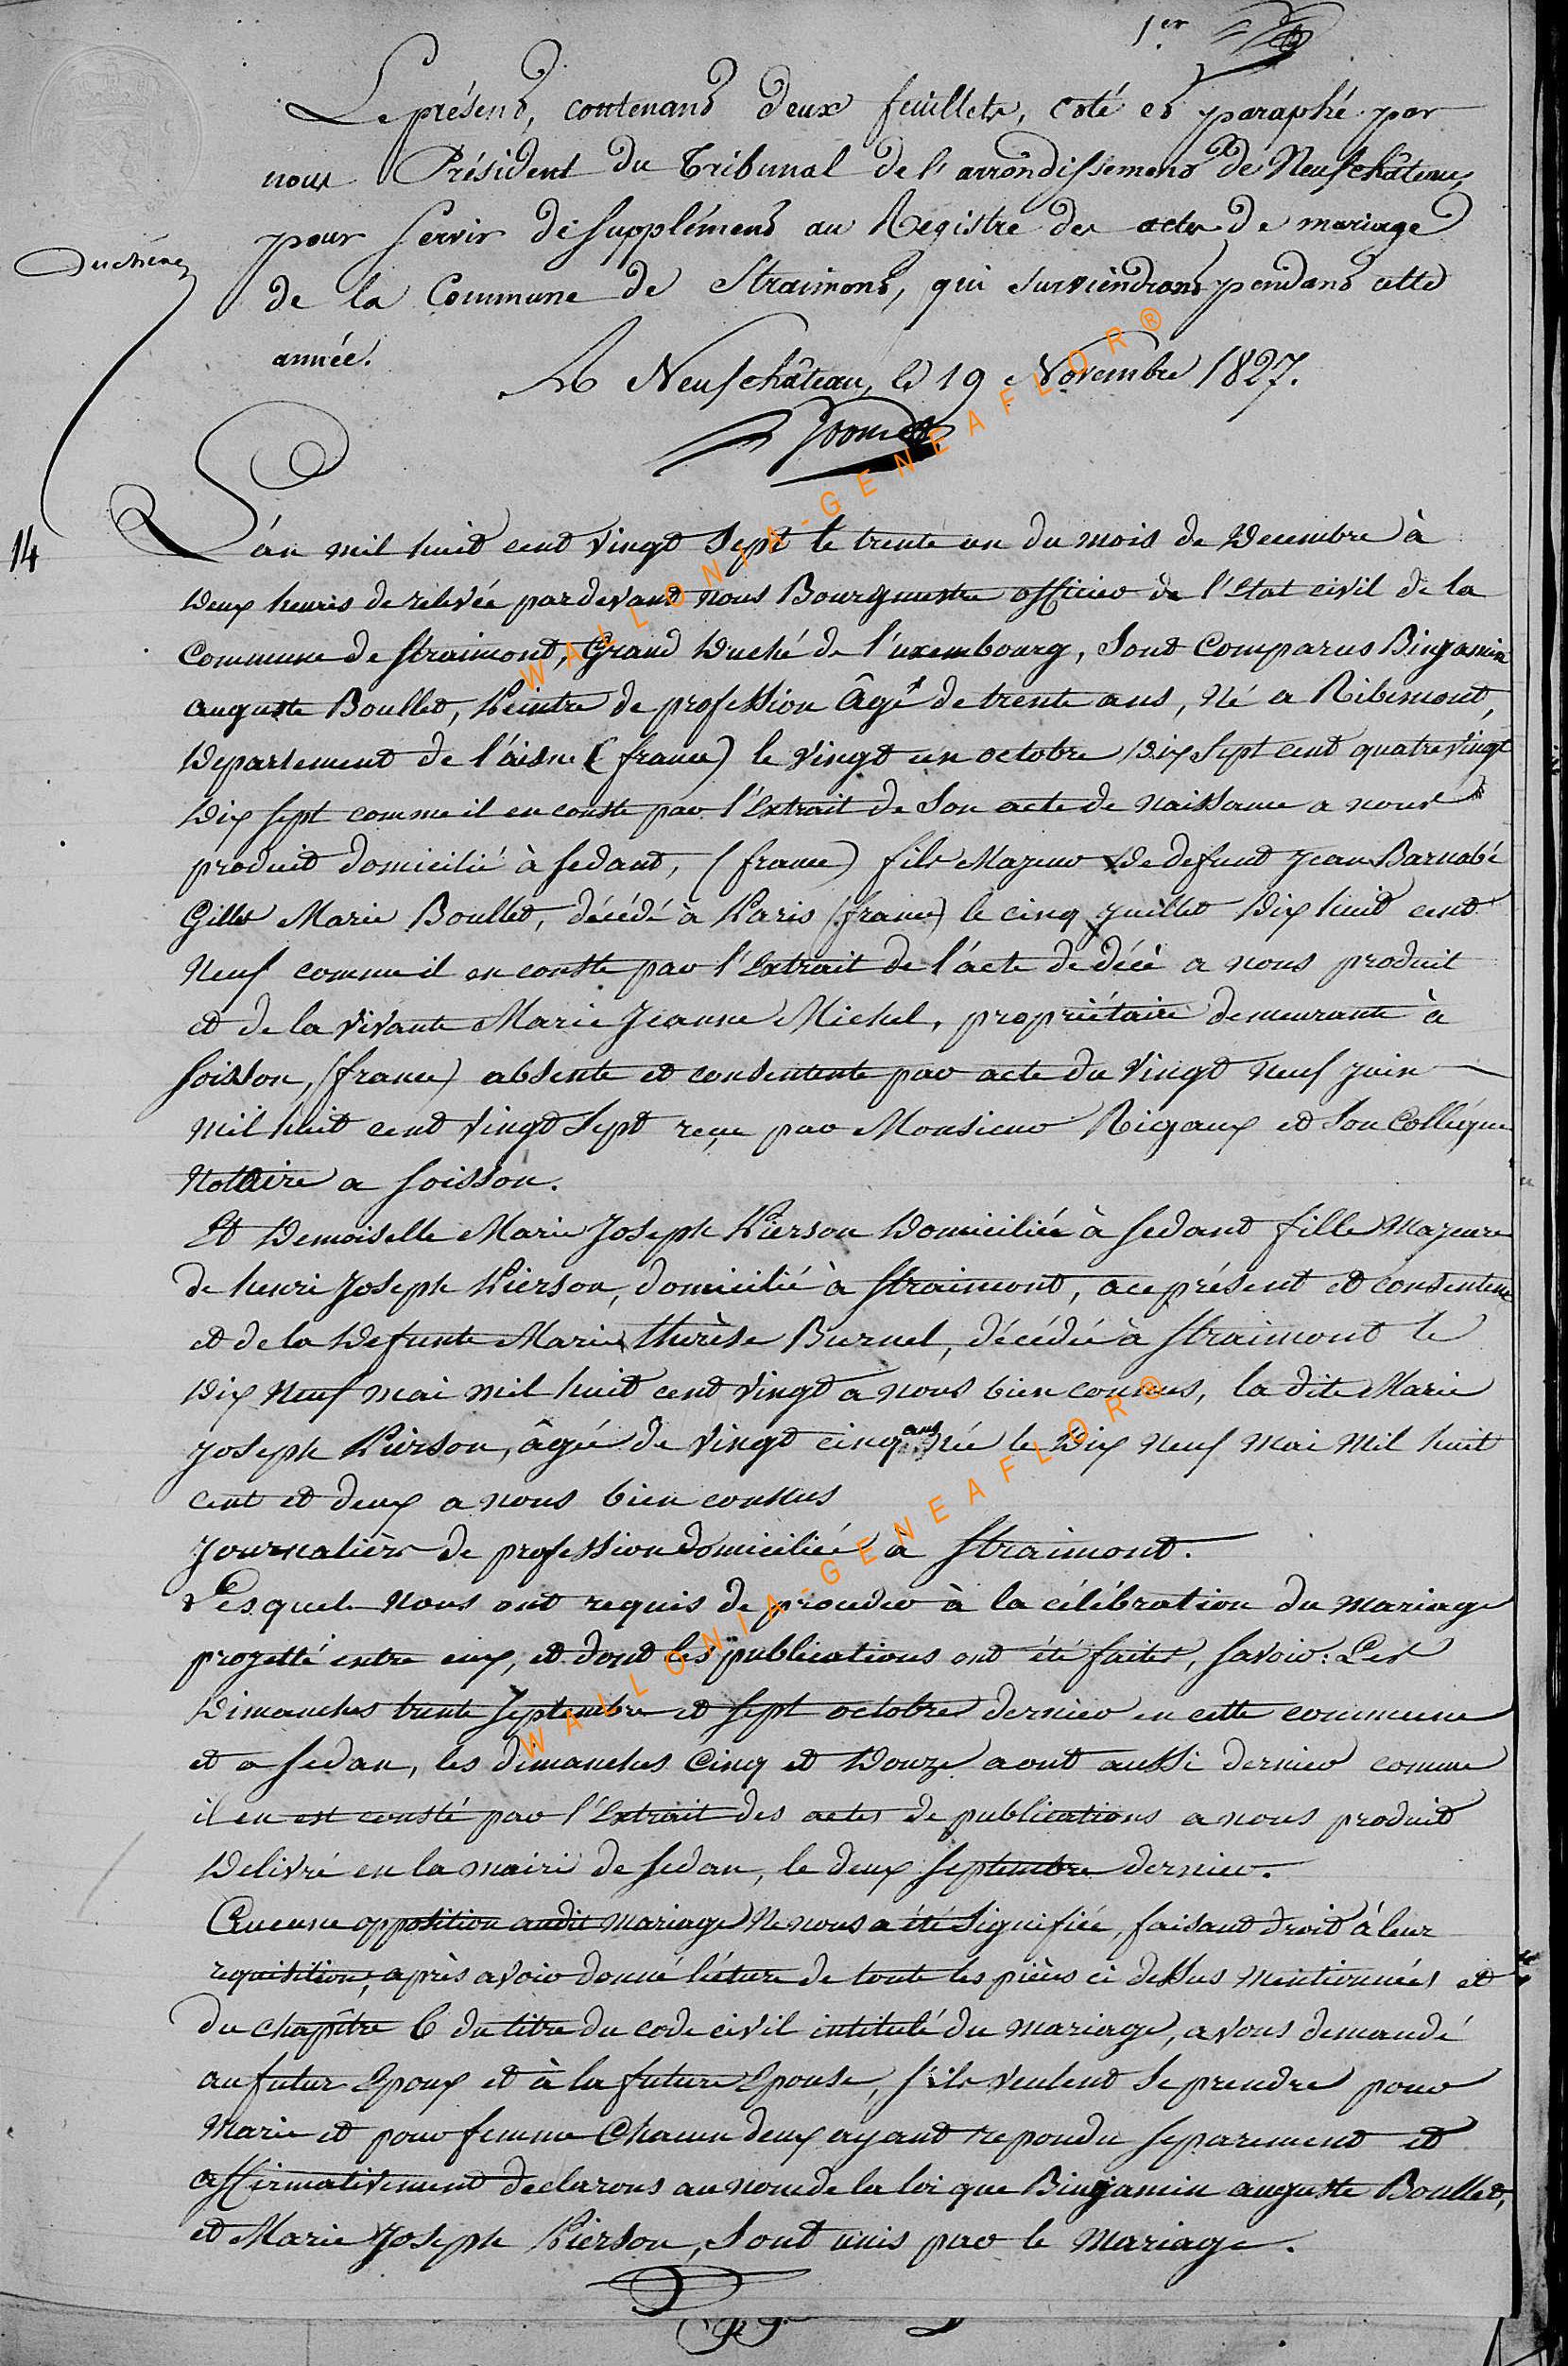 1er
Le présent, contenant deux feuillets, coté et paraphé par
nous Président du Tribunal de l'arrondissement de Neufchâteau,
pour servir de supplément au Registre des actes de mariage
de la Commune de Straimont, qui surviendront pendant cette
année.
A Neufchâteau, le 19 Novembre 1827.
14
L'án mil huit cent vingt Sept le trente un du mois de Decembre à
Deux heures de relevée pardevant nous Bourgmestre officier de l'Etat civil de la
Commune de Straimont, Grand Duché de Luxembourg, Sont Comparus Binjamin
auguste Boullet, Peintre de profession âgé de trente ans, Né a Ribemont,
Departement de l'aisne (france) le vingt un octobre Dix Sept cent quatre vingt
Dix Sept comme il en conste par l'Extrait de Son acte de Naissance a nous
produit domicilié à Sedant, (france) fils Majeur De defunt Jean Barnabé
Gilles Marie Boullet, décédé à Paris (france) le cinq Juillet Dix huit cent
Neuf comme il en conste par l'Extrait de l'acte de décé a nous produit
et de la vivante Marie Jeanne Michel, propriétaire demeurante à
Soisson, (france) absente et consentente par acte du Vingt Neuf juin
Mil huit cent Vingt Sept reçue par Monsieur Rigaux et Son Collégue
Notaire a Soisson.
Et Demoiselle Marie Joseph Pierson Domiciliée à Sedant fille Majeure
de henri Joseph Pierson, domicilié à Straimont, ace présent et consentent
et de la Defunte Marie thérèse Burnel, décédée à Straimont le
Dix Neuf mai mil huit cent vingt a nous bien connus, la dite Marie
Joseph Pierson, âgée de vingt cinq ans née le Dix Neuf Mai Mil huit
cent et deux a nous bien connus
Journalière de profession domiciliée a Straimont.
Lesquels Nous ont requis de proceder à la célébration du Mariage
projetté entre eux, et dont les publications ont été faites, Savoir: Les
Dimanches trente Septembre et Sept octobre dernier en cette commune
et a Sedan, les dimanches Cinq et Douze aout aussi dernier comme
il en est consté par l'Extrait des actes de publications a nous produit
Delivré en la mairi de Sedan, le deux Septembre dernier.
Aucune opposition audit Mariage Ne nous a été Signifiée, faisant droit à leur
requisition, après avoir donné lécture de toute les pièces ci dessus Mentionnées et
du chapître 6 du titre du code civil intitulé du Mariage, avons demandé
au futur Epoux et à la future Epouse, S'ils veulent Se prendre pour
Marie et pour femme Chacun deux ayant repondu Separement et
affirmativement declarons au nom de la loi que Binjamin auguste Boullet,
et Marie Joseph Pierson, Sont unis par le Mariage.
WALLONIA-GENEAFLOR®
WALLONIA-GENEAFLOR®